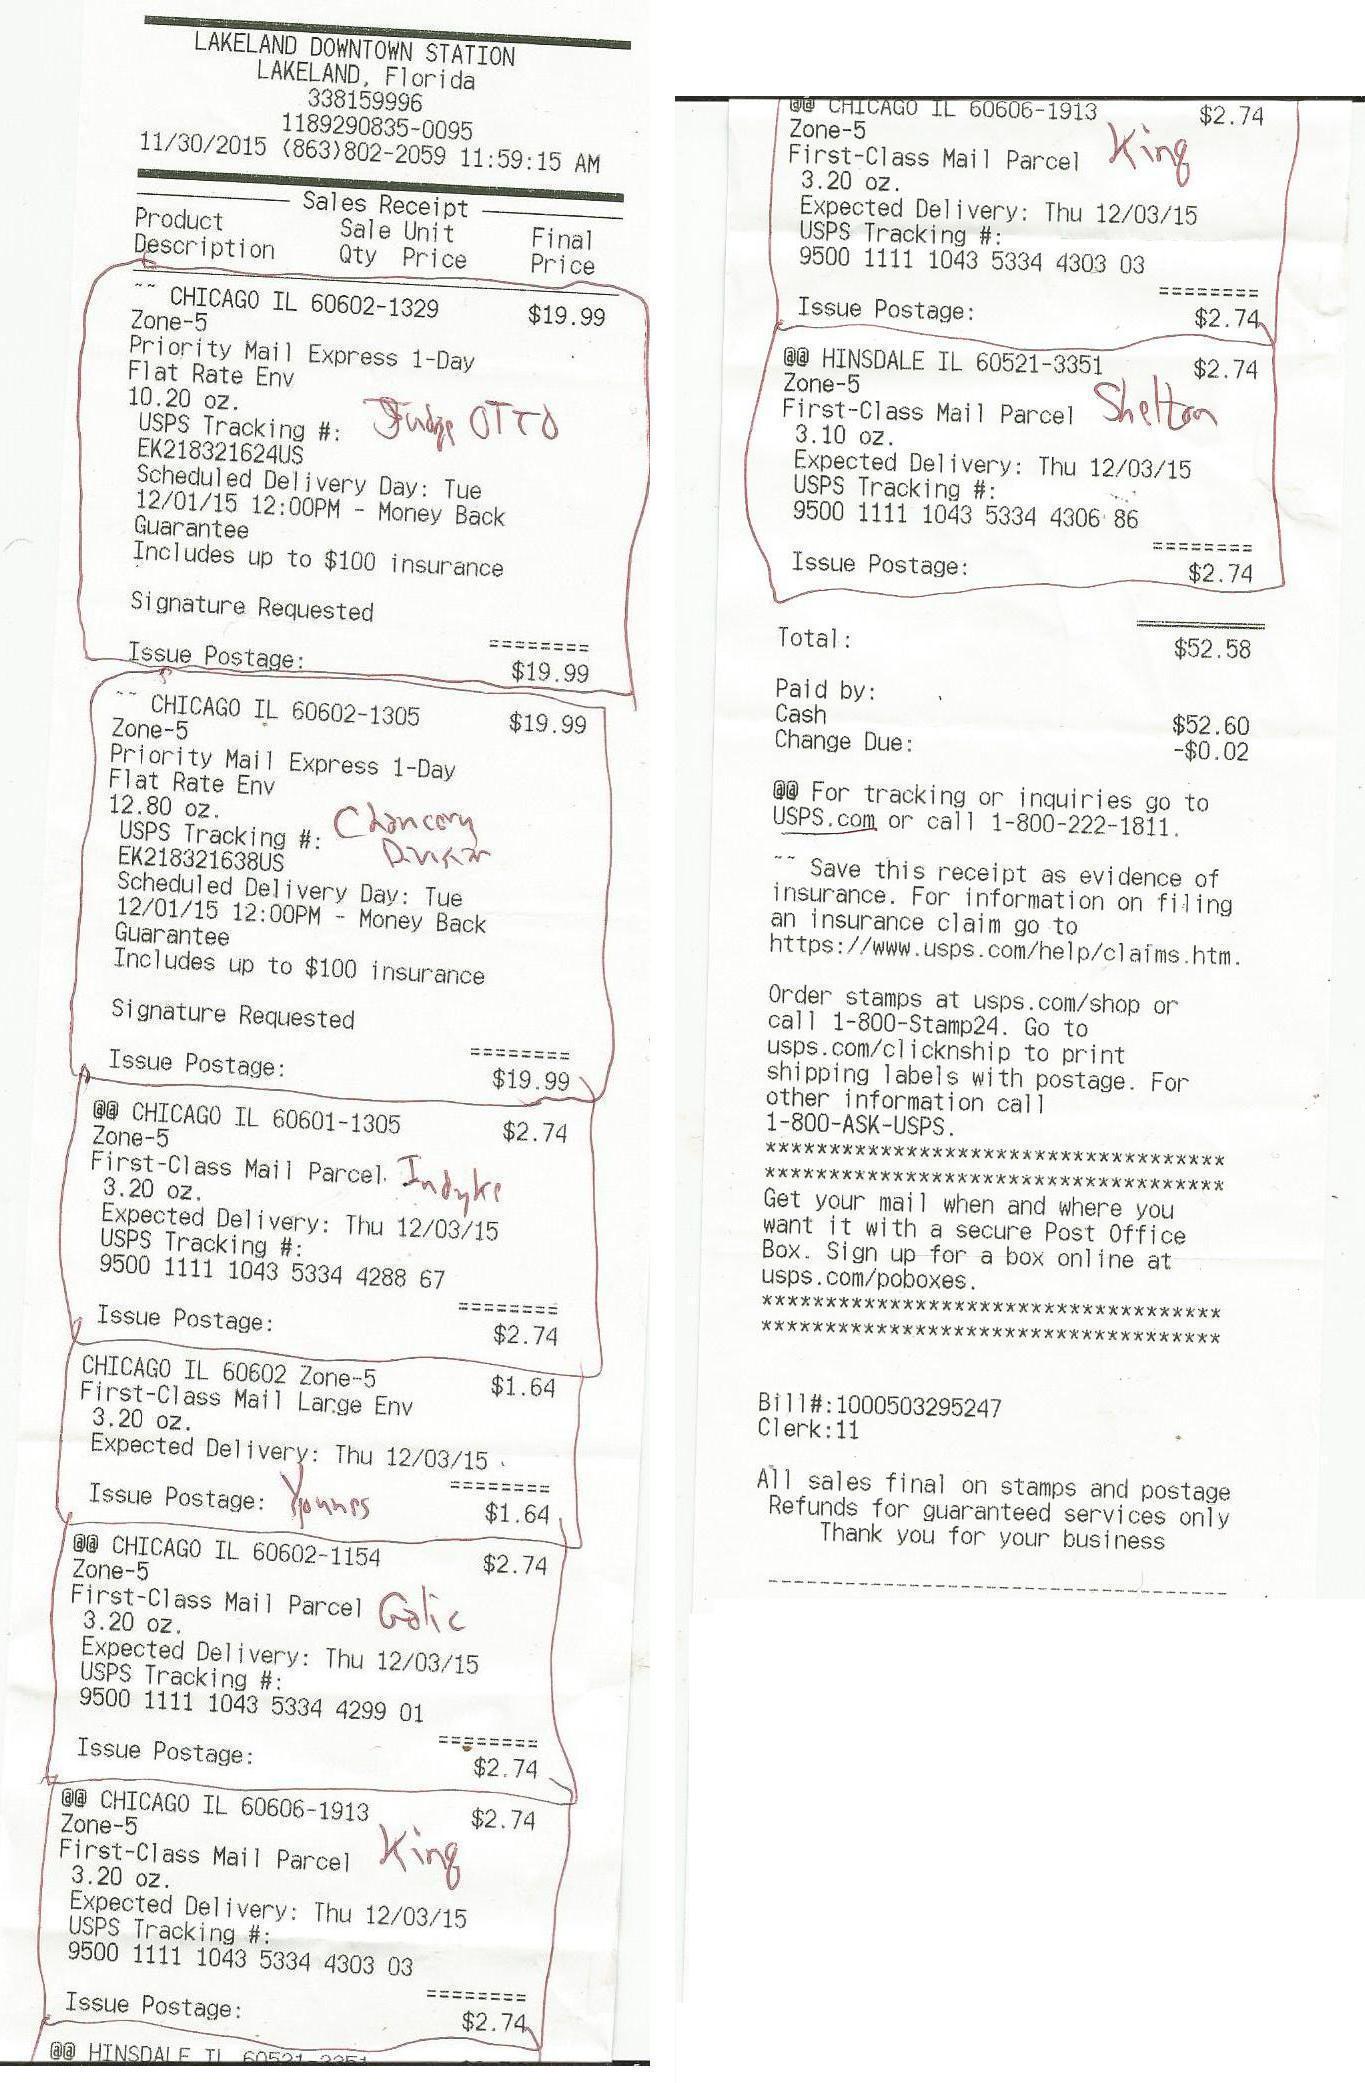 LAKELAND DOWNTOWN STATION
LAKELAND, Florida
338159996
1189290835-0095
11/30/2015 (863)802-2059 11:59:15 AM
Sales Receipt
Product Sale Unit Final
Description Qty Price Price
~~ CHICAGO IL 60602-1329 $19.99
Zone-5
Priority Mail Express 1-Day
Flat Rate Env
10.20 oz.
USPS Tracking #: Judge OTTO
EK218321624US
Scheduled Delivery Day: Tue
12/01/15 12:00PM - Money Back
Guarantee
Includes up to $100 insurance
Signature Requested
========
Issue Postage: $19.99
~~ CHICAGO IL 60602-1305 $19.99
Zone-5
Priority Mail Express 1-Day
Flat Rate Env
12.80 oz.
USPS Tracking #: Chancery
Division
EK218321638US
Scheduled Delivery Day: Tue
12/01/15 12:00PM - Money Back
Guarantee
Includes up to $100 insurance
Signature Requested
========
Issue Postage: $19.99
@@ CHICAGO IL 60601-1305 $2.74
Zone-5
First-Class Mail Parcel Indyke
3.20 oz.
Expected Delivery: Thu 12/03/15
USPS Tracking #:
9500 1111 1043 5334 4288 67
========
Issue Postage: $2.74
CHICAGO IL 60602 Zone-5 $1.64
First-Class Mail Large Env
3.20 oz.
Expected Delivery: Thu 12/03/15
========
Issue Postage: Younes $1.64
@@ CHICAGO IL 60602-1154 $2.74
Zone-5
First-Class Mail Parcel Galic
3.20 oz.
Expected Delivery: Thu 12/03/15
USPS Tracking #:
9500 1111 1043 5334 4299 01
========
Issue Postage: $2.74
@@ CHICAGO IL 60606-1913 $2.74
Zone-5
First-Class Mail Parcel King
3.20 oz.
Expected Delivery: Thu 12/03/15
USPS Tracking #:
9500 1111 1043 5334 4303 03
========
Issue Postage: $2.74
@@ HINSDALE IL 60521-3351
@@ CHICAGO IL 60606-1913 $2.74
Zone-5
First-Class Mail Parcel King
3.20 oz.
Expected Delivery: Thu 12/03/15
USPS Tracking #:
9500 1111 1043 5334 4303 03
========
Issue Postage: $2.74
@@ HINSDALE IL 60521-3351 $2.74
Zone-5
First-Class Mail Parcel Shelton
3.10 oz.
Expected Delivery: Thu 12/03/15
USPS Tracking #:
9500 1111 1043 5334 4306 86
========
Issue Postage: $2.74
Total: $52.58
Paid by:
Cash $52.60
Change Due: -$0.02
@@ For tracking or inquiries go to
USPS.com or call 1-800-222-1811.
~~ Save this receipt as evidence of
insurance. For information on filing
an insurance claim go to
https://www.usps.com/help/claims.htm.
Order stamps at usps.com/shop or
call 1-800-Stamp24. Go to
usps.com/clicknship to print
shipping labels with postage. For
other information call
1-800-ASK-USPS.
************************************
************************************
Get your mail when and where you
want it with a secure Post Office
Box. Sign up for a box online at
usps.com/poboxes.
************************************
************************************
Bill#:1000503295247
Clerk:11
All sales final on stamps and postage
Refunds for guaranteed services only
Thank you for your business